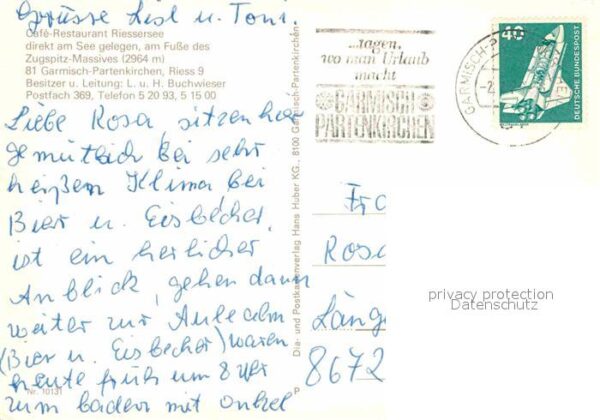 Grüsse Lisl u. Toni.
Café-Restaurant Riessersee
direkt am See gelegen, am Fuße des
Zugspitz-Massives (2964 m)
81 Garmisch-Partenkirchen, Riess 9
Besitzer u. Leitung: L. u. H. Buchwieser
Postfach 369, Telefon 5 20 93, 5 15 00
Liebe Rosa, sitzen hier
gemütlich bei sehr
heißem Klima bei
Bier u. Eisbecher,
ist ein herlicher
Anblick, gehen dann
weiter zur Aulealm
(Bier u. Eisbecher) waren
heute früh um 8 Uhr
zum baden mit onkel
Nr. 10131
P
Dia- und Postkartenverlag Hans Huber KG., 8100 Garmisch-Partenkirchen
...tagen,
wo man Urlaub
macht
GARMISCH
PARTENKIRCHEN
GARMISCH-P
40
DEUTSCHE BUNDESPOST
Fr
Rosa
Länge
8672
privacy protection
Datenschutz